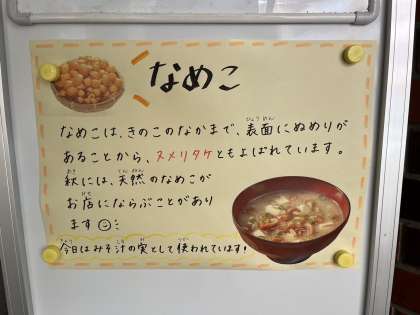 なめこ
なめこは、きのこのなかまで、表面にぬめりが
あることから、ヌメリタケともよばれています。
秋には、天然のなめこが
お店にならぶことがあり
ます
今日はみそ汁の実として使われています!